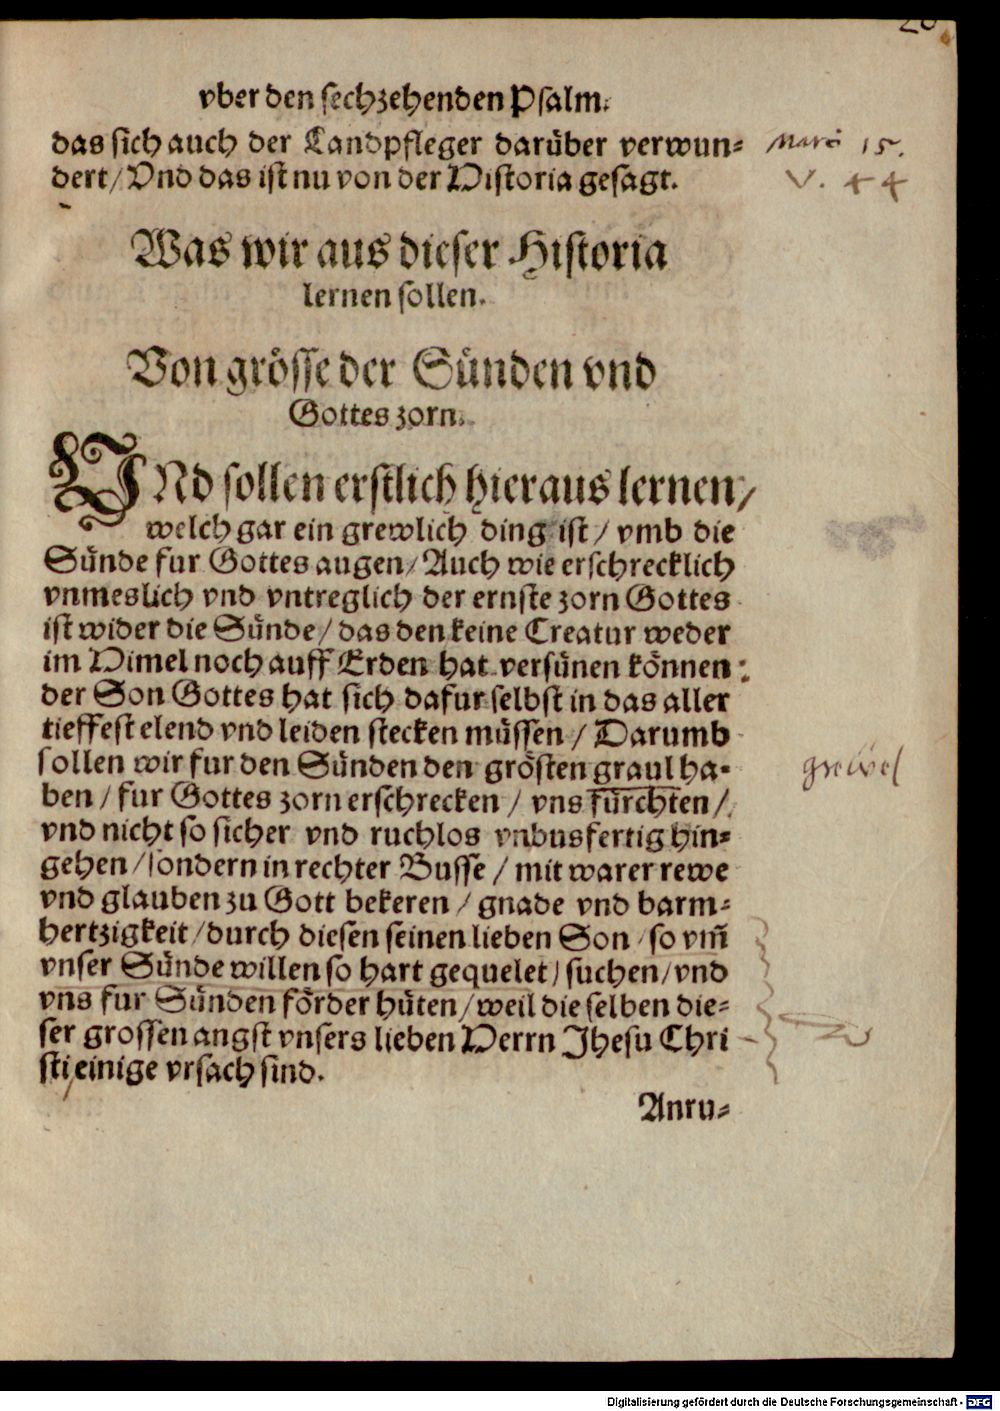 vber den sechzehenden Psalm.
das sich auch der Landpfleger darüber verwun-
dert/ Vnd das ist nu von der Historia gesagt.
Marci 15.
V. 44
Was wir aus dieser Historia
lernen sollen.
Von grösse der Sünden vnd
Gottes zorn.
VNd sollen erstlich hieraus lernen/
welch gar ein grewlich ding ist / vmb die
Sünde fur Gottes augen/ Auch wie erschrecklich
vnmeslich vnd vntreglich der ernste zorn Gottes
ist wider die Sünde/ das den keine Creatur weder
im Himel noch auff Erden hat versünen können:
der Son Gottes hat sich dafur selbst in das aller
tieffest elend vnd leiden stecken müssen / Darumb
sollen wir fur den Sünden den grösten graul ha-
grewel
ben / fur Gottes zorn erschrecken / vns fürchten /
vnd nicht so sicher vnd ruchlos vnbusfertig hin-
gehen / sondern in rechter Busse / mit warer rewe
vnd glauben zu Gott bekeren / gnade vnd barm-
hertzigkeit / durch diesen seinen lieben Son / so vm̃
vnser Sünde willen so hart gequelet / suchen / vnd
vns fur Sünden förder hüten / weil die selben die-
ser grossen angst vnsers lieben Herrn Jhesu Chri
sti einige vrsach sind.
Anru-
Digitalisierung gefördert durch die Deutsche Forschungsgemeinschaft - DFG